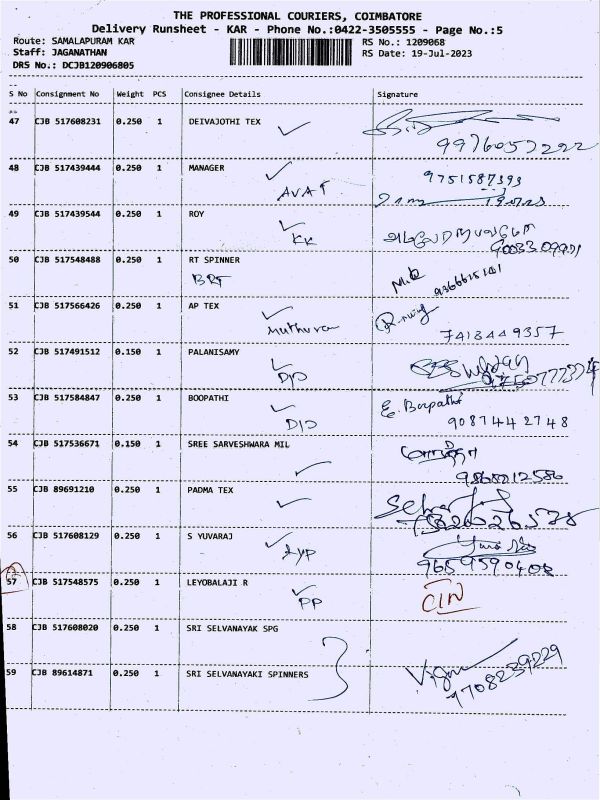 THE PROFESSIONAL COURIERS, COIMBATORE
Delivery Runsheet - KAR - Phone No.:0422-3505555 - Page No.:5
Route: SAMALAPURAM KAR RS No.: 1209068
Staff: JAGANATHAN RS Date: 19-Jul-2023
DRS No.: DCJB120906805
S No Consignment No Weight PCS Consignee Details Signature
47 CJB 517608231 0.250 1 DEIVAJOTHI TEX
48 CJB 517439444 0.250 1 MANAGER 9751587393
AVAT
49 CJB 517439544 0.250 1 ROY
KK
50 CJB 517548488 0.250 1 RT SPINNER
BRT 9366615141
51 CJB 517566426 0.250 1 AP TEX
7418449357
52 CJB 517491512 0.150 1 PALANISAMY
D/O
53 CJB 517584847 0.250 1 BOOPATHI E. Boopathi
D/O 9087442748
54 CJB 517536671 0.150 1 SREE SARVESHWARA MIL
55 CJB 89691210 0.250 1 PADMA TEX
56 CJB 517608129 0.250 1 S YUVARAJ
57 CJB 517548575 0.250 1 LEYOBALAJI R
PP
58 CJB 517608020 0.250 1 SRI SELVANAYAK SPG
59 CJB 89614871 0.250 1 SRI SELVANAYAKI SPINNERS
9708239229